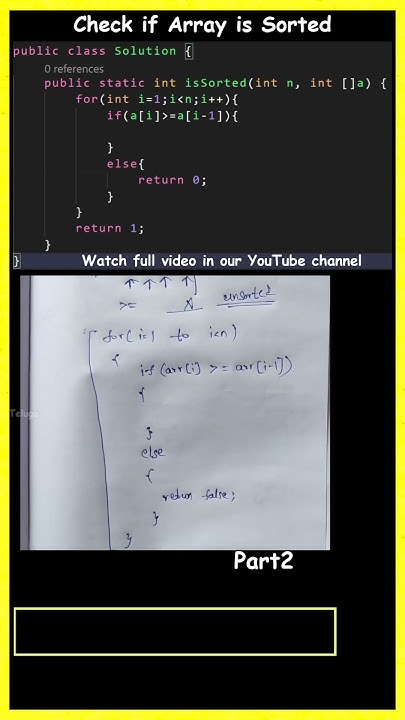 Check if Array is Sorted
public class Solution {
0 references
public static int isSorted(int n, int []a) {
for(int i=1;i<n;i++){
if(a[i]>=a[i-1]){
}
else{
return 0;
}
}
return 1;
}
}
Watch full video in our YouTube channel
>=
unsorted
for(i=1 to i<n)
{
if (arr[i] >= arr[i-1])
{
}
else
{
return false;
}
}
Telugu
Part2